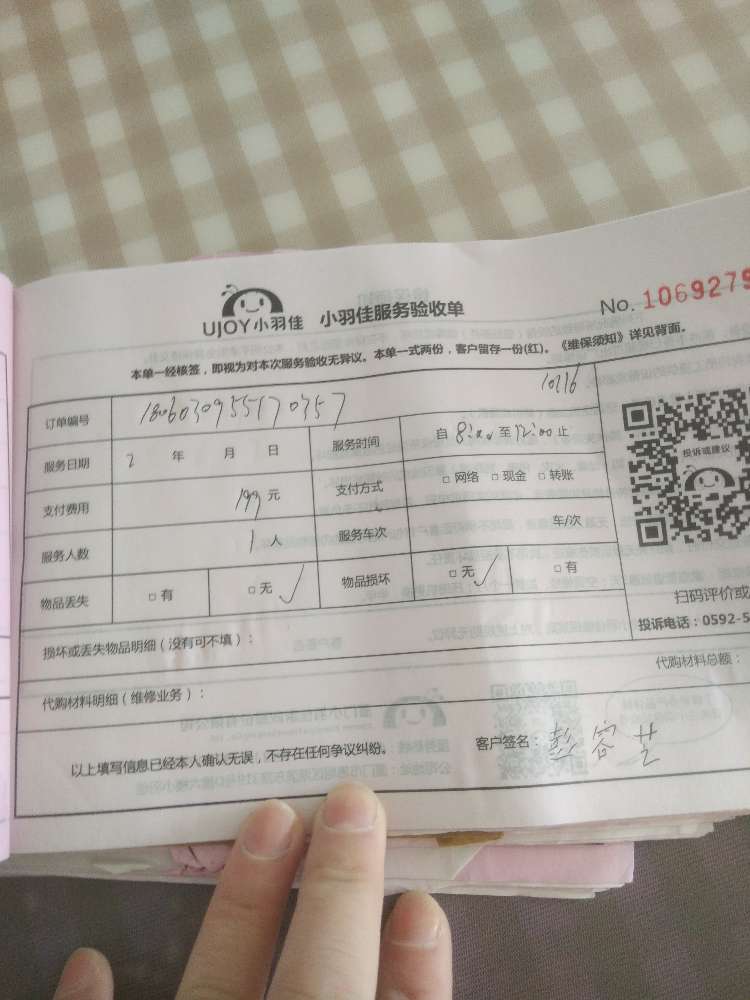 UJOY小羽佳 小羽佳服务验收单 No. 1069279
本单一经核签，即视为对本次服务验收无异议。本单一式两份，客户留存一份(红)。《维保须知》详见背面。
10716
订单编号 1806030955170357
服务日期 2 年 月 日 服务时间 自 8:00 至 12:00 止
支付费用 199 元 支付方式 □ 网络 □ 现金 □ 转账
服务人数 1 人 服务车次 车/次
物品丢失 □ 有 □ 无 ✓ 物品损坏 □ 无 ✓ □ 有
投诉或建议
扫码评价或
投诉电话：0592-5
损坏或丢失物品明细（没有可不填）：
代购材料明细（维修业务）： 代购材料总额：
以上填写信息已经本人确认无误，不存在任何争议纠纷。 客户签名：彭容芝